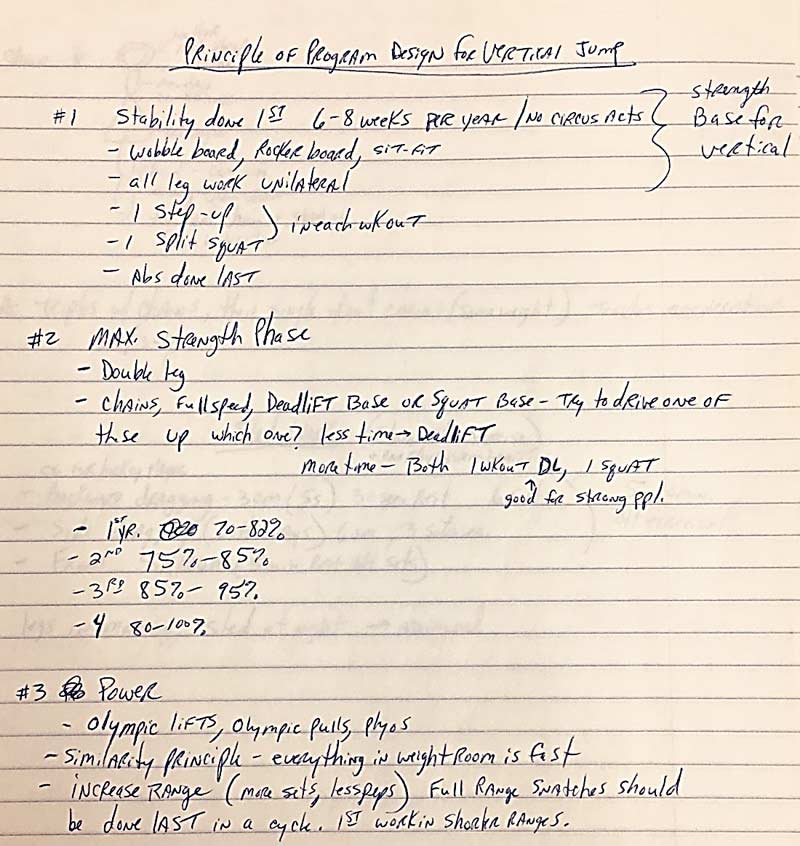 Principle of Program Design for Vertical Jump
#1 Stability done 1st 6-8 weeks per year / No circus acts } Strength Base for vertical
- wobble board, Rocker board, sit-fit
- all leg work unilateral
- 1 step-up
- 1 split squat } in each wkout
- Abs done last
#2 Max. Strength Phase
- Double leg
- Chains, full speed, Deadlift Base or Squat Base - Try to drive one of
these up which one? less time → Deadlift
more time - Both 1 wkout DL, 1 squat
↑
good for strong ppl.
- 1st yr. 70-82%
- 2nd 75%-85%
- 3rd 85%-95%
- 4 80-100%
#3 Power
- Olympic lifts, Olympic pulls, plyos
- Similarity principle - everything in weight room is fast
- increase range (more sets, less reps) Full range snatches should
be done last in a cycle. 1st work in shorter ranges.